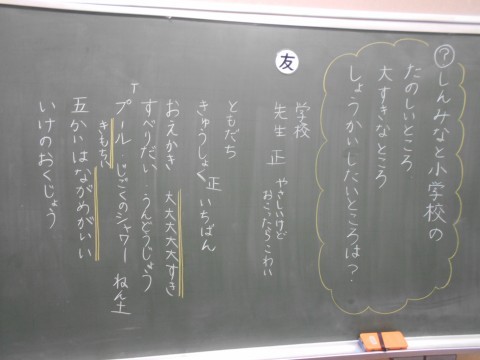 ？しんみなと小学校の
たのしいところ
大すきなところ
しょうかいしたいところは？
友
学校
先生 正 やさしいけど
おこったらこわい
ともだち
きゅうしょく 正 いちばん
おえかき 大大大大大すき
すべりだい・うんどうじょう
プール じごくのシャワー ねん土
きもちい
五かいはながめがいい
いけのおくじょう